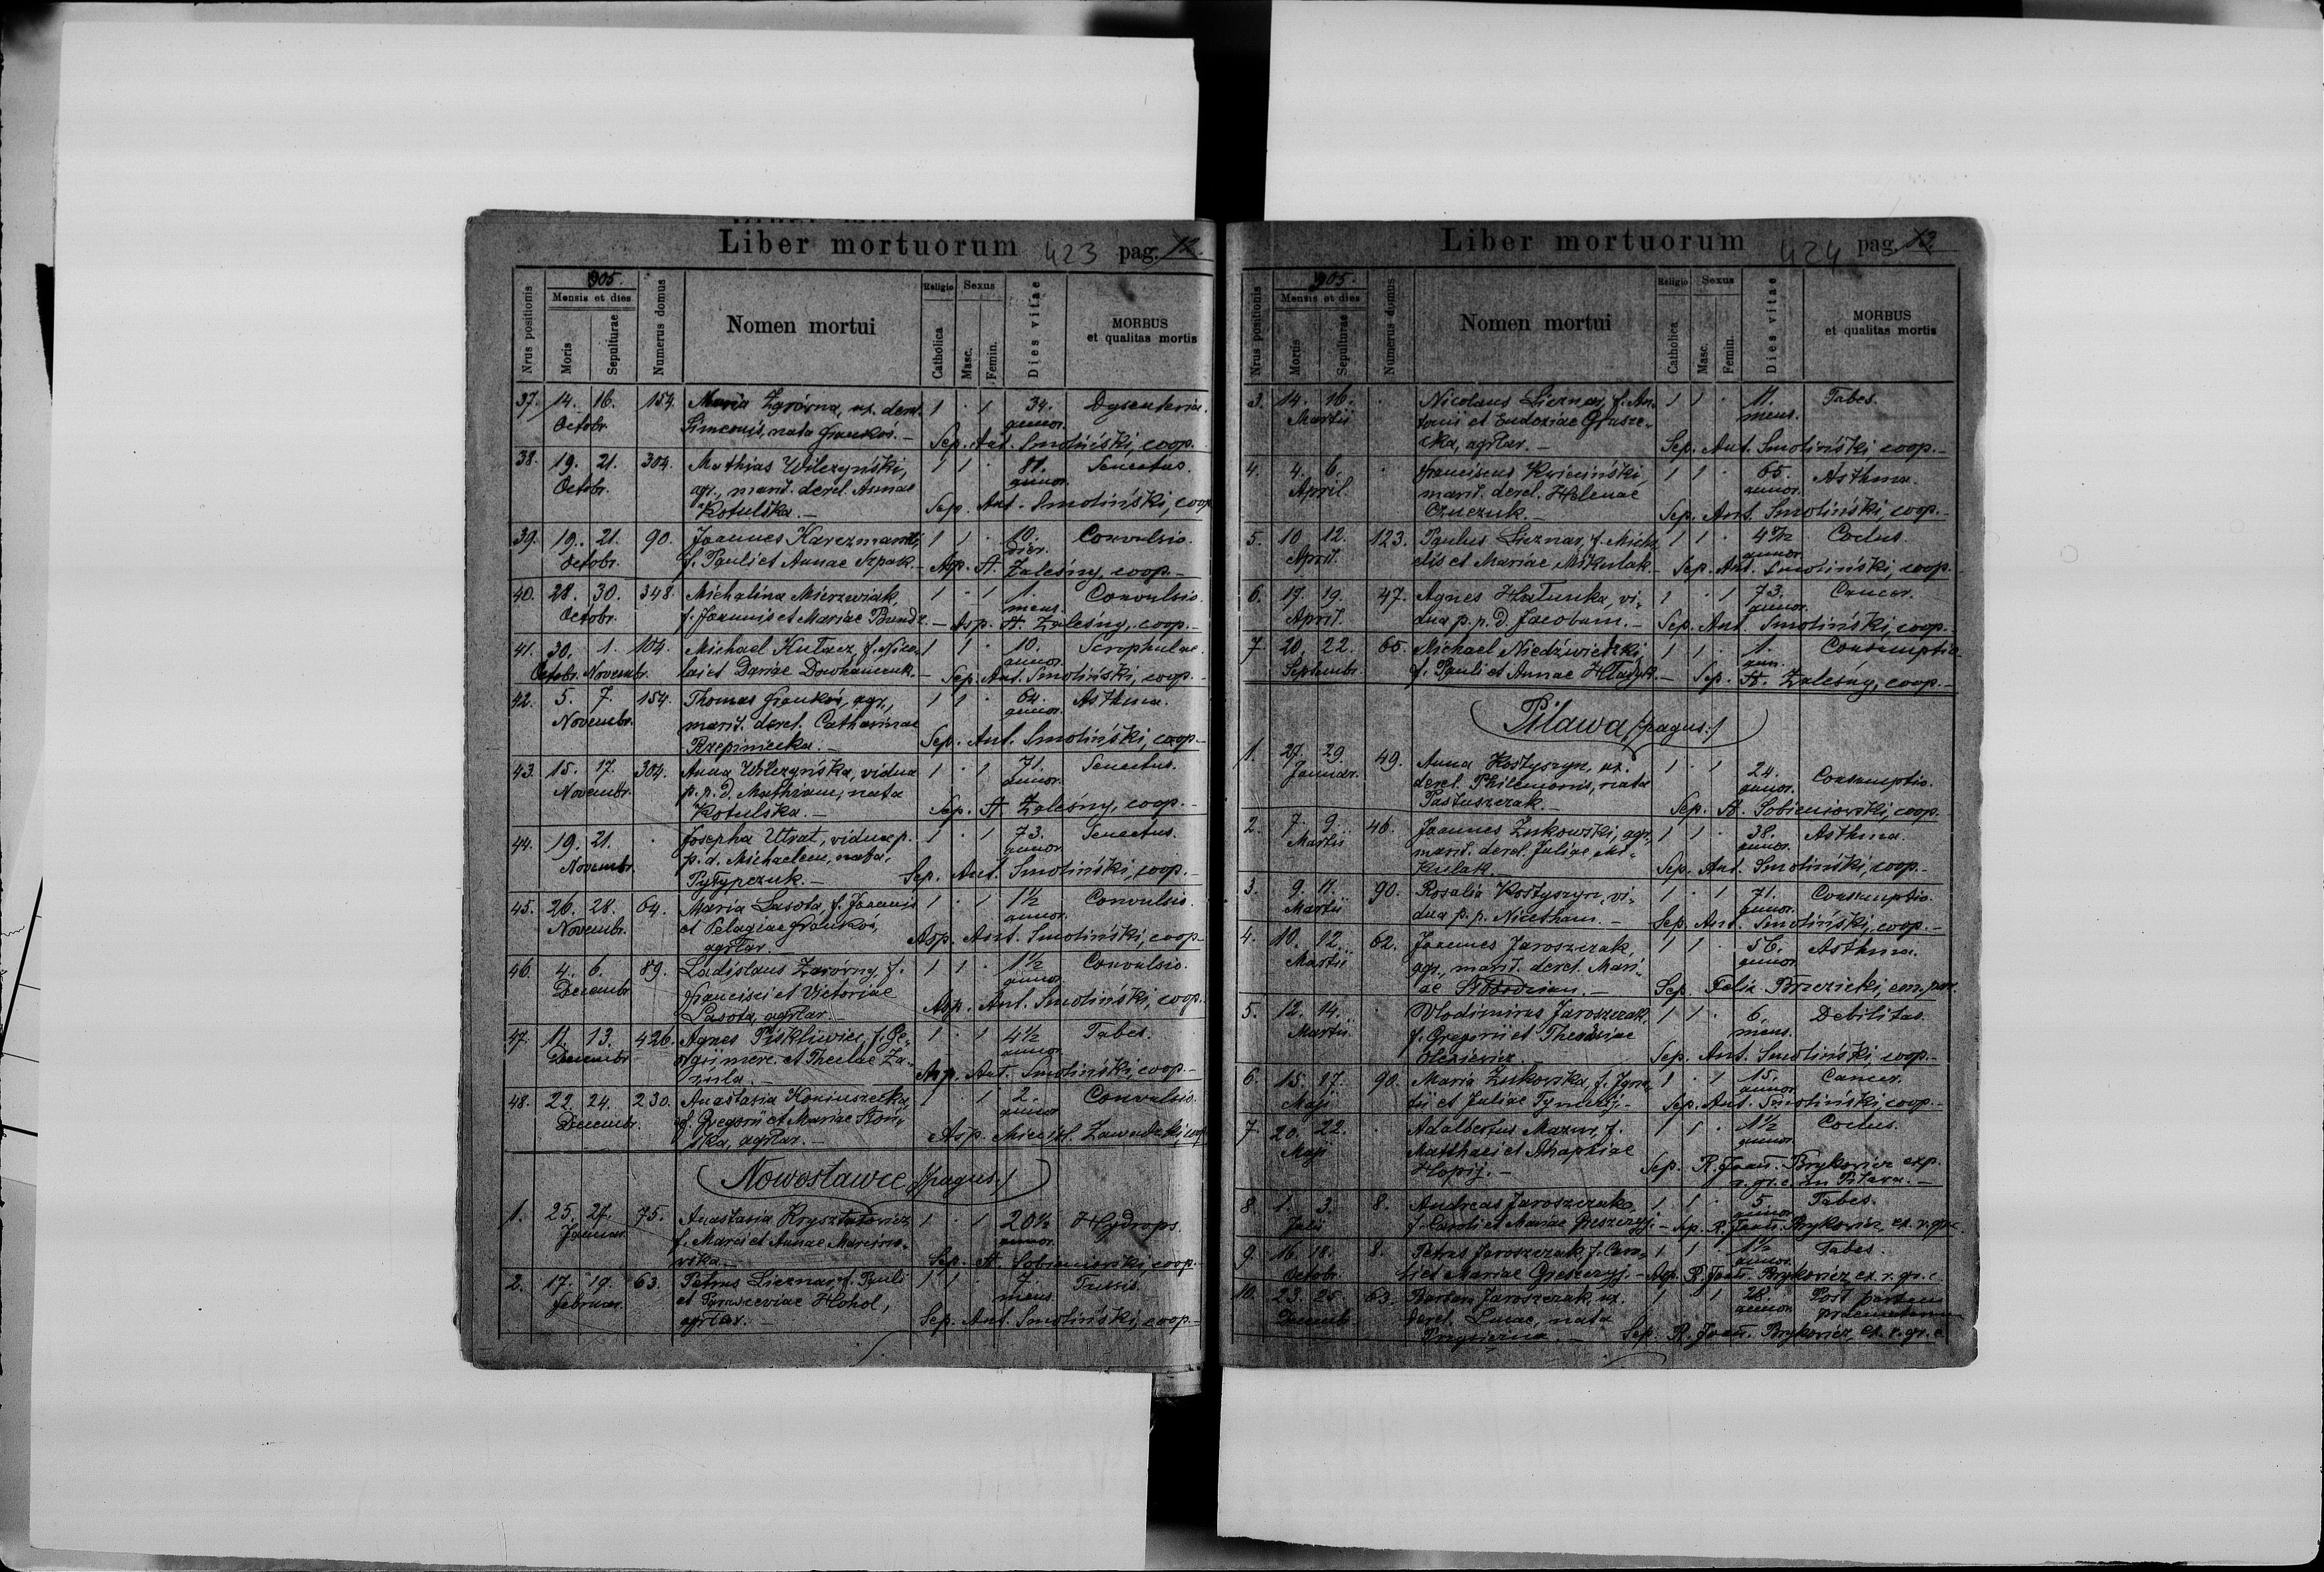 Liber mortuorum 423 pag. 12.
Nrus positionis
905.
Mensis et dies
Moris
Sepulturae
Numerus domus
Nomen mortui
Religio
Catholica
Sexus
Masc.
Femin.
Dies vitae
MORBUS
et qualitas mortis
37. 14. 16. 154. Maria Zgrórna, ux. derel. 1 · 1 34. Dysenteria.
Octobr. annor.
Simeonis, nata Frankoś. — Sep. Ant. Smoliński, coop.
38. 19. 21. 304. Mathias Wilczyński, 1 1 · 81. Senectus.
Octobr. agr., marit. derel. Annae annor.
Kotulska. — Sep. Ant. Smoliński, coop
39. 19. 21. 90. Joannes Karczmarz, 1 1 · 10. Convulsio.
Octobr. f. Pauli et Annae Szpak. — Asp. A. Zaleśny, coop. —
dier.
40. 28. 30. 348. Michalina Mierzwiak, 1 · 1 1. Convulsio.
Octobr. f. Joannis et Mariae — Asp. A. Zaleśny, coop. —
mens.
41. 30. 1. 104. Michael Kulacz, f. Nico- 1 1 · 10. Scrophulae.
Octobr. Novembr. lai et Dariae — Sep. Ant. Smoliński, coop. —
annor.
42. 5. 7. 154. Thomas Frankoś, agr., 1 1 · 64. Asthma.
Novembr. marit. derel. Catharinae annor.
Rzepiniecka. — Sep. Ant. Smoliński, coop. —
43. 15. 17. 304. Anna Wilczyńska, vidua 1 · 1 71. Senectus.
Novembr. p. p. d. Mathiam, nata annor.
Kotulska. — Sep. A. Zaleśny, coop. —
44. 19. 21. · Josepha Utrat, vidua p. 1 · 1 73. Senectus.
Novembr. p. d. Michaelem, nata, annor.
Pytypczuk. — Sep. Ant. Smoliński, coop. —
45. 26. 28. 64. Maria Lasota, f. Joannis 1 · 1 1½ Convulsio.
Novembr. et Pelagiae Frankoś, annor.
agrlar. — Asp. Ant. Smoliński, coop —
46. 4. 6. 89. Ladislaus Zarórny, f. 1 1 · 1½ Convulsio.
Decembr. Francisci et Victoriae annor.
Lasota, agrlar. — Asp. Ant. Smoliński, coop.
47. 11. 13. 426. Agnes Piskliwiec, f. Ge- 1 · 1 4½ Tabes.
Decembr. orgii merc. et Theclae Za- annor.
— Asp. Ant. Smoliński, coop. —
48. 22. 24. 230. Anastasia Koniuszecka, 1 · 1 2. Convulsio.
Decembr. f. Gregorii et Mariae Słoń- annor
ska, agrlar. — Asp. Miecisl. Zawadzki,
Nowostawce /:pagus:/
1. 25. 27. 75. Anastasia Krysztalowicz 1 · 1 20½ Hydrops.
Januar. f. Marci et Annae Marcino- annor.
wska. — Sep. A. Sobieniowski, coop. —
2. 17. 19. 63. Petrus Licznar, f. Pauli 1 1 · 7. Tussis.
Februar. et Parasceviae Hohol, mens.
agrlar. — Sep. Ant. Smoliński, coop —
Liber mortuorum 424 pag. 13.
Nrus positionis
905.
Mensis et dies
Mortis
Sepulturae
Numerus domus
Nomen mortui
Religio
Catholica
Sexus
Masc.
Femin.
Dies vitae
MORBUS
et qualitas mortis
3. 14. 16. · Nicolaus Licznar, f. An- 1 1 · 11. Tabes.
Martii tonii et Eudoxiae Grusze- mens.
cka, agrlar. — Sep. Ant. Smoliński, coop. —
4. 4. 6. · Franciscus Kwiciński, 1 1 · 65. Asthma.
April. marit. derel. Helenae annor.
— Sep. Ant. Smoliński, coop. —
5. 10 12. 123. Paulus Licznar, f. Micha- 1 1 · Coctus.
April. elis et Mariae Mikulak. — Sep. Ant. Smoliński, coop. —
annor.
6. 17. 19. 47. Agnes Hałuszka, vi- 1 · 1 73. Cancer.
April. dua p. p. d. Jacobum. — Sep. Ant. Smoliński, coop. —
annor.
7. 20. 22. 65. Michael Niedźwiedzki, 1 1 · 1. Consumptio.
Septembr. f. Pauli et Annae Hładyk. — Sep. A. Zaleśny, coop. —
ann.
Pilawa /:pagus:/
1. 27. 29. 49. Anna Kostyszyn, ux. 1 · 1 24. Consumptio.
Januar. derel. Philemonis, nata annor.
Pastuszczak. — Sep. A. Sobieniowski, coop. —
2. 7. 9. 46. Joannes Żukowski, agr., 1 1 · 38. Asthma.
Martii marit. derel. Juliae Mi- annor.
kulak. — Sep. Ant. Smoliński, coop. —
3. 9. 11. 90. Rosalia Kostyszyn, vi- 1 · 1 71. Consumptio.
Martii dua p. p. Nicetham. — Sep. Ant. Smoliński, coop. —
annor.
4. 10. 12. 62. Joannes Jaroszczak, 1 1 · 56. Asthma.
Martii agr., marit. derel. Mari- annor.
ae — Sep. Felix Brzezicki, em. par.
5. 12. 14. · Vlodimirus Jaroszczak, 1 1 · 6. Debilitas.
Martii f. Gregorii et Theodosiae mens.
Olexiewicz. — Sep. Ant. Smoliński, coop. —
6. 15. 17. 90. Maria Żukowska, f. Igna- 1 · 1 15. Cancer.
Maji tii et Juliae — Sep. Ant. Smoliński, coop. —
annor.
7. 20. 22. · Adalbertus Mazur, f. 1 1 · 1½ Coctus.
Maji Matthaei et Ahaphiae annor.
Hopij. — Sep. R. Joan. Brykowicz exp.
r. gr. c. in Pilawa. —
8. 1. 3. 8. Andreas Jaroszczak, 1 1 · 5. Tabes.
Julii f. Caroli et Mariae — Sep. R. Joan. Brykowicz, ex. r. gr. c.
annor
9. 16. 18. 8. Petrus Jaroszczak, f. Caro- 1 1 · 1½ Tabes.
Octobr. li et Mariae — Asp. R. Joan. Brykowicz, ex. r. gr. c.
annor.
10. 23. 25 63. Barbara Jaroszczak, ux. 1 · 1 28. Post partum
Decembr. derel. Lucae, nata annor. praematurum
— Sep. R. Joan. Brykowicz, ex. r. gr. c.